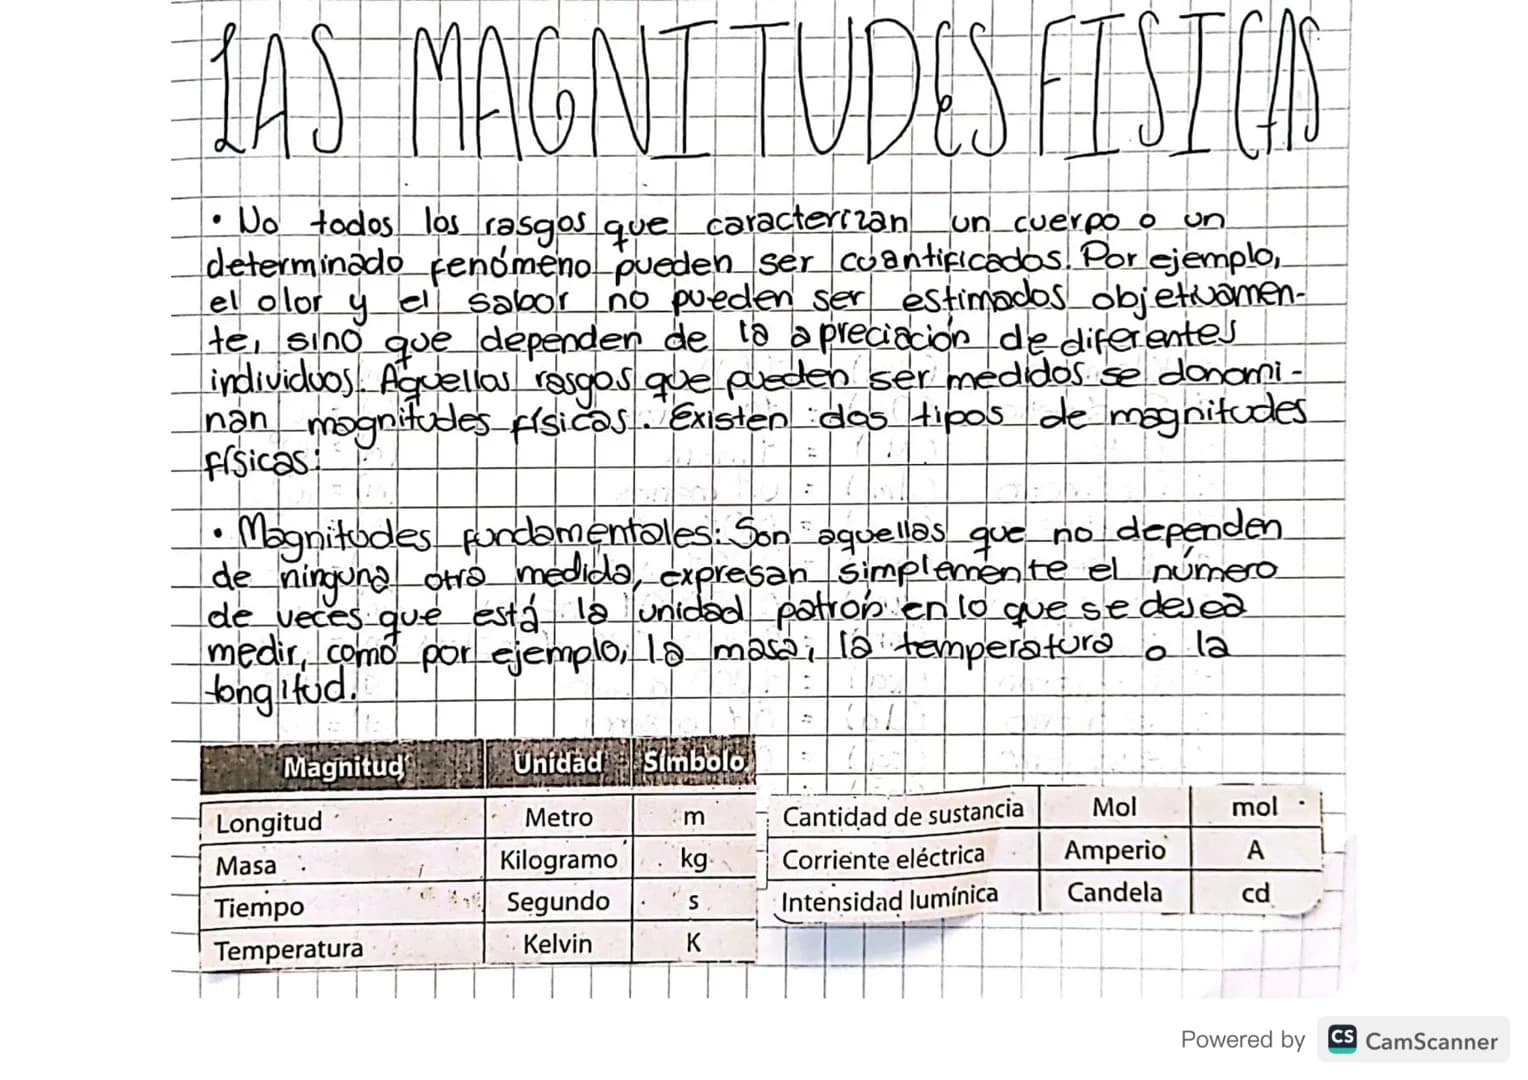 LAS MAGNITUDES FISICAS
• No todos los rasgos que caracterizan un cuerpo o un
determinado fenómeno pueden ser cuantificados. Por ejemplo,
el olor y el sabor no pueden ser estimados objetivamen-
te, sino que dependen de la apreciación de diferentes
individuos. Aquellos rasgos que pueden ser medidos se donomi-
nan magnitudes físicas. Existen dos tipos de magnitudes
físicas:
• Magnitudes fundamentales: Son aquellas que no dependen
de ninguna otra medida, expresan simplemente el número
de veces que está la unidad patrón en lo que se desea
medir, como por ejemplo, la masa, la temperatura o la
longitud.
Magnitud Unidad Símbolo
Longitud Metro m
Masa Kilogramo kg
Tiempo Segundo s
Temperatura Kelvin K
Cantidad de sustancia Mol mol
Corriente eléctrica Amperio A
Intensidad lumínica Candela cd
Powered by CS CamScanner